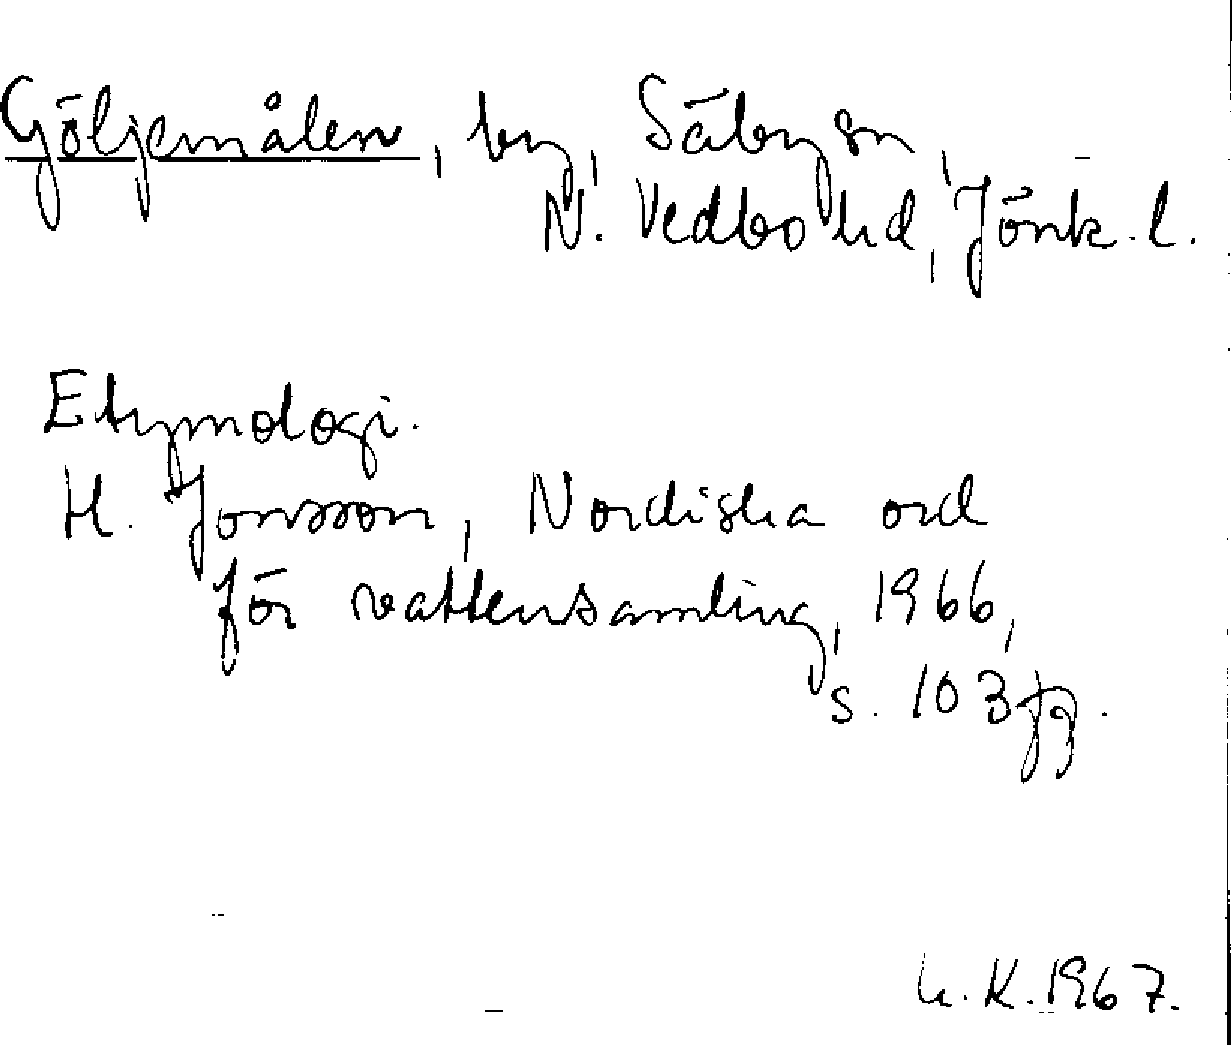 Göljemålen, by, Säby sn,
N. Vedbo hd, Jönk. l.
Etymologi.
H. Jonsson, Nordiska ord
för vattensamling, 1966,
s. 103 ff.
K. 1967.